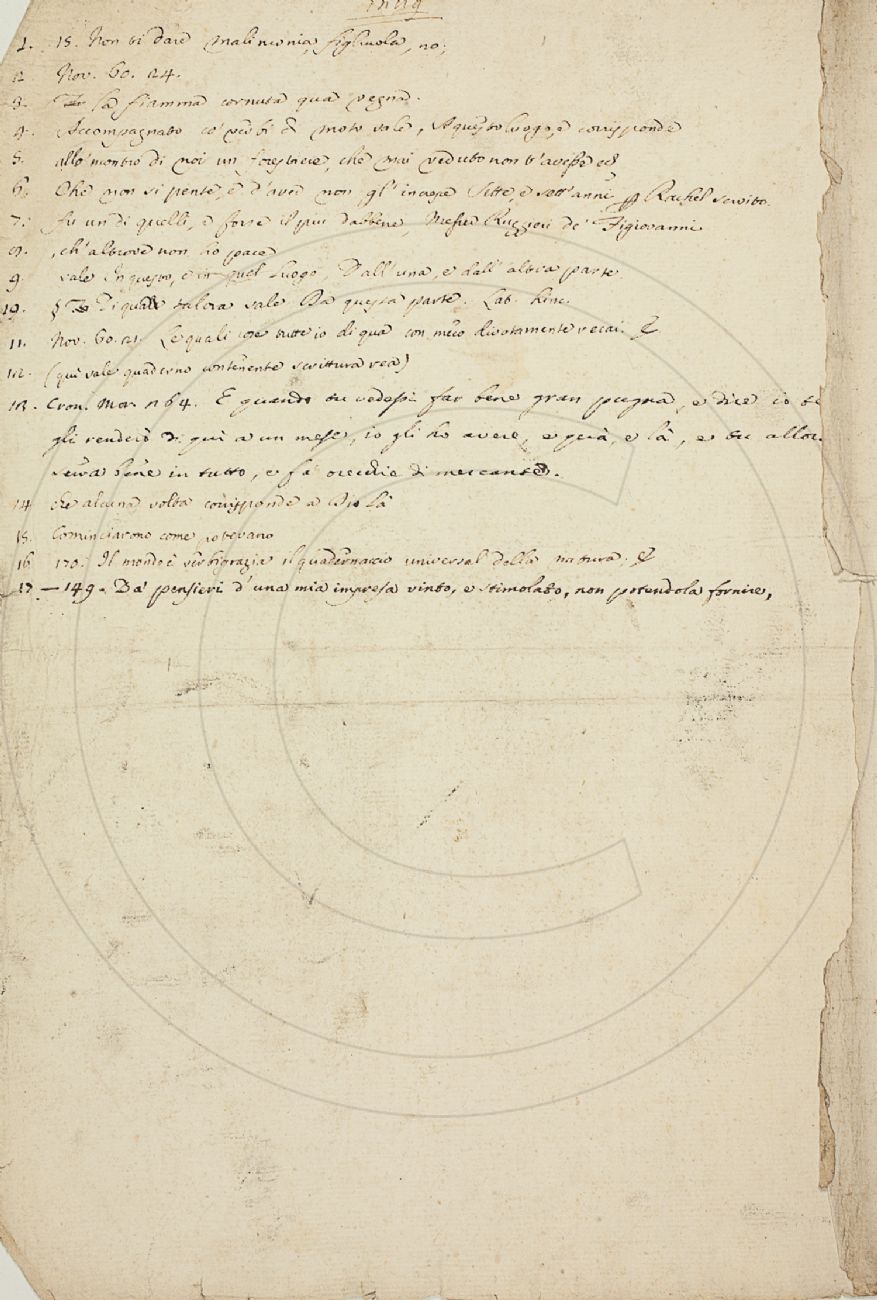 1. 15. Non ti dare malinconia, figliuola, no;
2. Nov. 60. 24.
3. la fiamma cornuta qua vegna.
4. Accompagnato co' verbi di moto vale, A questo luogo, e corrisponde
5. allo 'ncontro di noi un forestiere, che mai veduto non t'avesse ec
6. Che non si pente, e d'aver non gl' incresce Sette, e sett'anni Rachel servito.
7. fu un di quelli, e forse il più dabbene, Messer Ruggieri de' Figiovanni
8. , ch' altrove non ho pace
9. vale In questo, e in quel luogo, Dall' una, e dall' altra parte
10. § Di qua talora vale Da questa parte. Lat. hinc.
11. Nov. 60. 21. Le quali cose tutte io di qua con meco divotamente recai.
12. (qui vale quaderno contenente scrittura rea)
13. Cron. Mor. 264. E quando tu vedessi far bene gran pugna, e dire io te
gli renderò di qui a un mese, io gli ho avere, e qua, e là, e tu allor
serva bene in tutto, e fa orecchie di mercante.
14 che alcuna volta corrisponde a Di là
15. Cominciarono come potevano
16 170. Il mondo è verbigrazia il quadernaccio universal della natura.
17 — 149. Da' pensieri d'una mia impresa vinto, e stimolato, non potendola fornire,